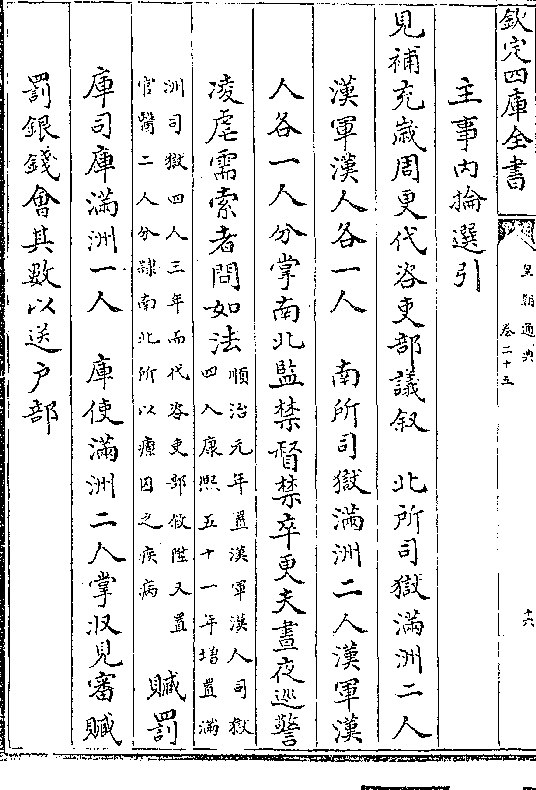 欽定四庫全書
皇朝通典
卷二十五
十六
主事內掄選引
見補充歲周更代咨吏部議叙　北所司獄滿洲二人
漢軍漢人各一人　南所司獄滿洲二人漢軍漢
人各一人分掌南北監禁督禁卒更夫晝夜巡警
凌虐需索者問如法
順治元年置漢軍漢人司獄
四人康熙五十一年增置滿
洲司獄四人三年而代咨吏部攸陞又置
官醫二人分隸南北所以療囚之疾病
贓罰
庫司庫滿洲一人　庫使滿洲二人掌收見審贓
罰銀錢會其數以送户部